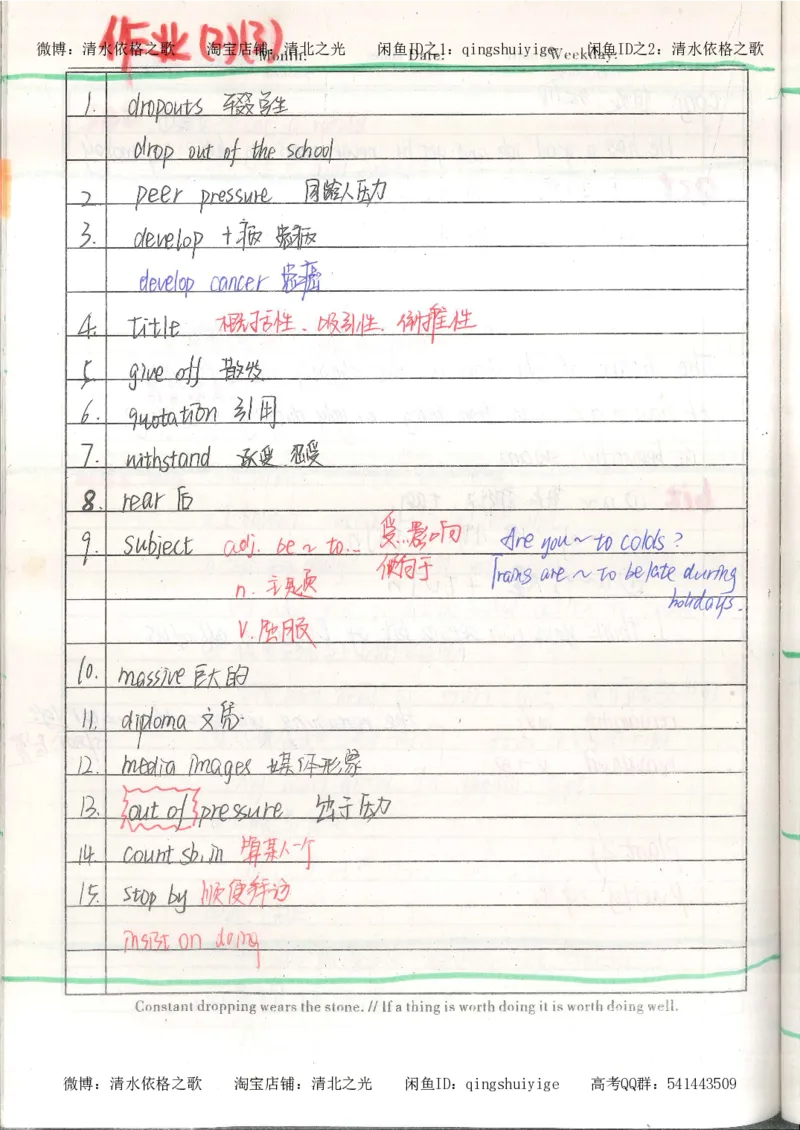 作业(2)(3)
微博：清水依格之歌 淘宝店铺：清北之光 闲鱼ID之1：qingshuiyige 闲鱼ID之2：清水依格之歌
Month: Date: Weekday:
1. dropouts 辍学生
drop out of the school
2. peer pressure 同龄人压力
3. develop +病 患病
develop cancer 患癌
4. title 概括性、吸引性、倒推性
5. give off 散发
6. quotation 引用
7. withstand 承受 忍受
8. rear 后
9. subject adj. be ~ to... 受...影响 Are you ~ to colds?
倾向于 Trains are ~ to be late during
n. 主题 holidays.
v. 屈服
10. massive 巨大的
11. diploma 文凭
12. media images 媒体形象
13. out of pressure 出于压力
14. count sb. in 算某人一个
15. stop by 顺便拜访
insist on doing
Constant dropping wears the stone. // If a thing is worth doing it is worth doing well.
微博：清水依格之歌 淘宝店铺：清北之光 闲鱼ID：qingshuiyige 高考QQ群：541443509